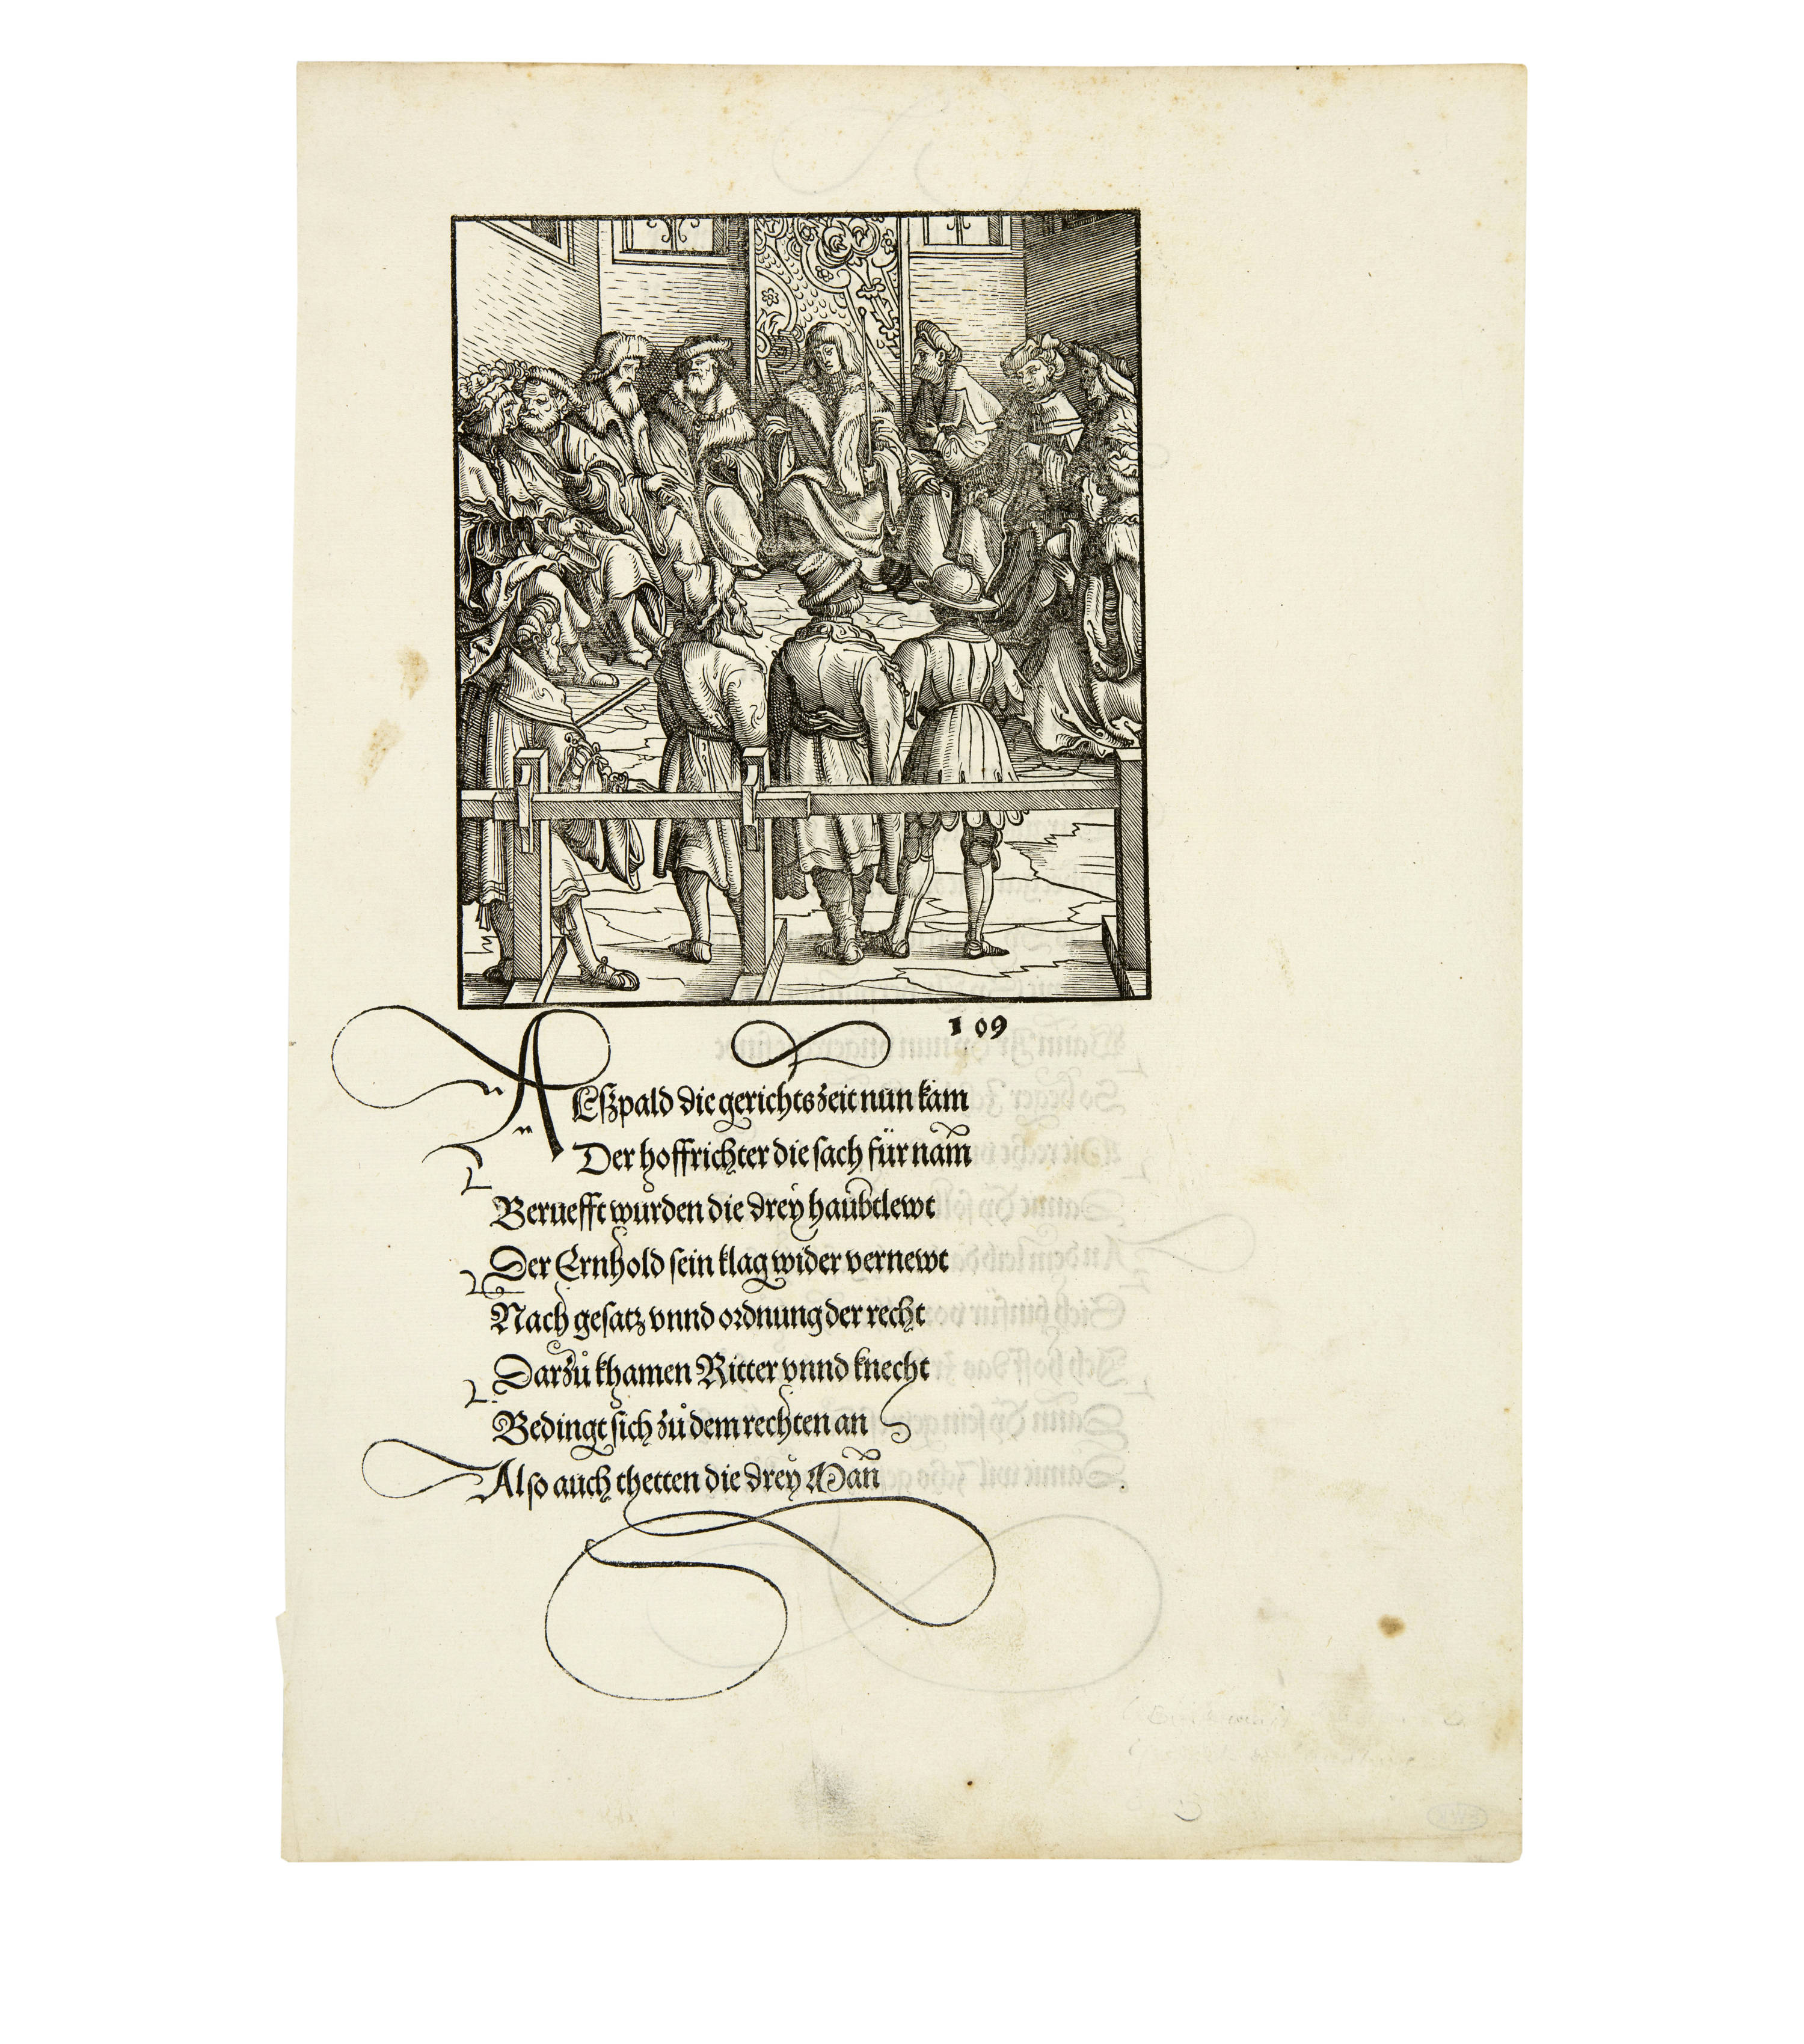 109
ALſzpald die gerichtszeit nun kam
Der hoffrichter die ſach für nam̄
Beruefft wurden die drey haubtlewt
Der Ernhold ſein klag wider vernewt
Nach geſatz vnnd ordnung der recht
Darzů khamen Ritter vnnd knecht
Bedingt ſich zů dem rechten an
Alſo auch thetten die drey Man̄